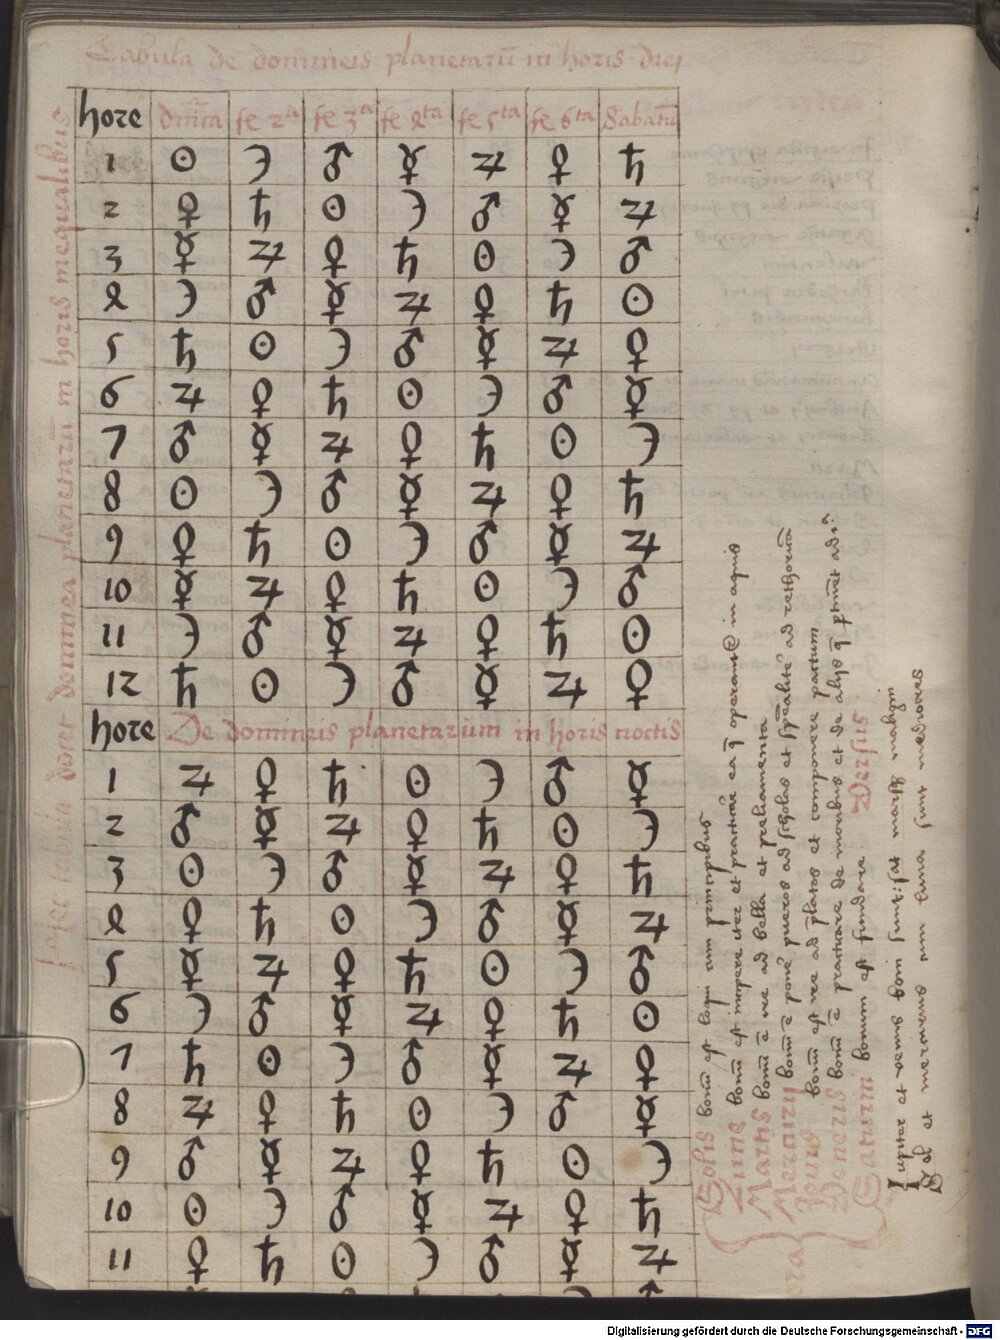 Tabula de dominiis planetarū in horis diei
hore dn̄ica fe 2ᵃ fe 3ᵗᵃ fe 4ᵗᵃ fe 5ᵗᵃ fe 6ᵗᵃ Sabatū
1 ☉ ☽ ♂ ☿ ♃ ♀ ♄
2 ♀ ♄ ☉ ☽ ♂ ☿ ♃
3 ☿ ♃ ♀ ♄ ☉ ☽ ♂
4 ☽ ♂ ☿ ♃ ♀ ♄ ☉
5 ♄ ☉ ☽ ♂ ☿ ♃ ♀
6 ♃ ♀ ♄ ☉ ☽ ♂ ☿
7 ♂ ☿ ♃ ♀ ♄ ☉ ☽
8 ☉ ☽ ♂ ☿ ♃ ♀ ♄
9 ♀ ♄ ☉ ☽ ♂ ☿ ♃
10 ☿ ♃ ♀ ♄ ☉ ☽ ♂
11 ☽ ♂ ☿ ♃ ♀ ♄ ☉
12 ♄ ☉ ☽ ♂ ☿ ♃ ♀
hore De dominiis planetarum in horis noctis
1 ♃ ♀ ♄ ☉ ☽ ♂ ☿
2 ♂ ☿ ♃ ♀ ♄ ☉ ☽
3 ☉ ☽ ♂ ☿ ♃ ♀ ♄
4 ♀ ♄ ☉ ☽ ♂ ☿ ♃
5 ☿ ♃ ♀ ♄ ☉ ☽ ♂
6 ☽ ♂ ☿ ♃ ♀ ♄ ☉
7 ♄ ☉ ☽ ♂ ☿ ♃ ♀
8 ♃ ♀ ♄ ☉ ☽ ♂ ☿
9 ♂ ☿ ♃ ♀ ♄ ☉ ☽
10 ☉ ☽ ♂ ☿ ♃ ♀ ♄
11 ♀ ♄ ☉ ☽ ♂ ☿ ♃
tabula docet dominia planetarū in horis inequalibus
Solis bonū est loqui cum principibus
Lune bonū est incipere iter et practicare ea q̄ operant in aquis
Martis bonū ē ire ad bella et preliamenta
Mercurii bonū ē ponē pueros ad scholas et ad rethoricā
Jouis bonū est ire ad p̄latos et componere pactum
Veneris bonū ē practicare de monibus et de aliis q̄ ptinet ad
Saturni bonum est fundare
Jupiter et venus boni sunt: sat marsq maligni
Sol et mercurius cum luna sunt mediocres
Digitalisierung gefördert durch die Deutsche Forschungsgemeinschaft - DFG